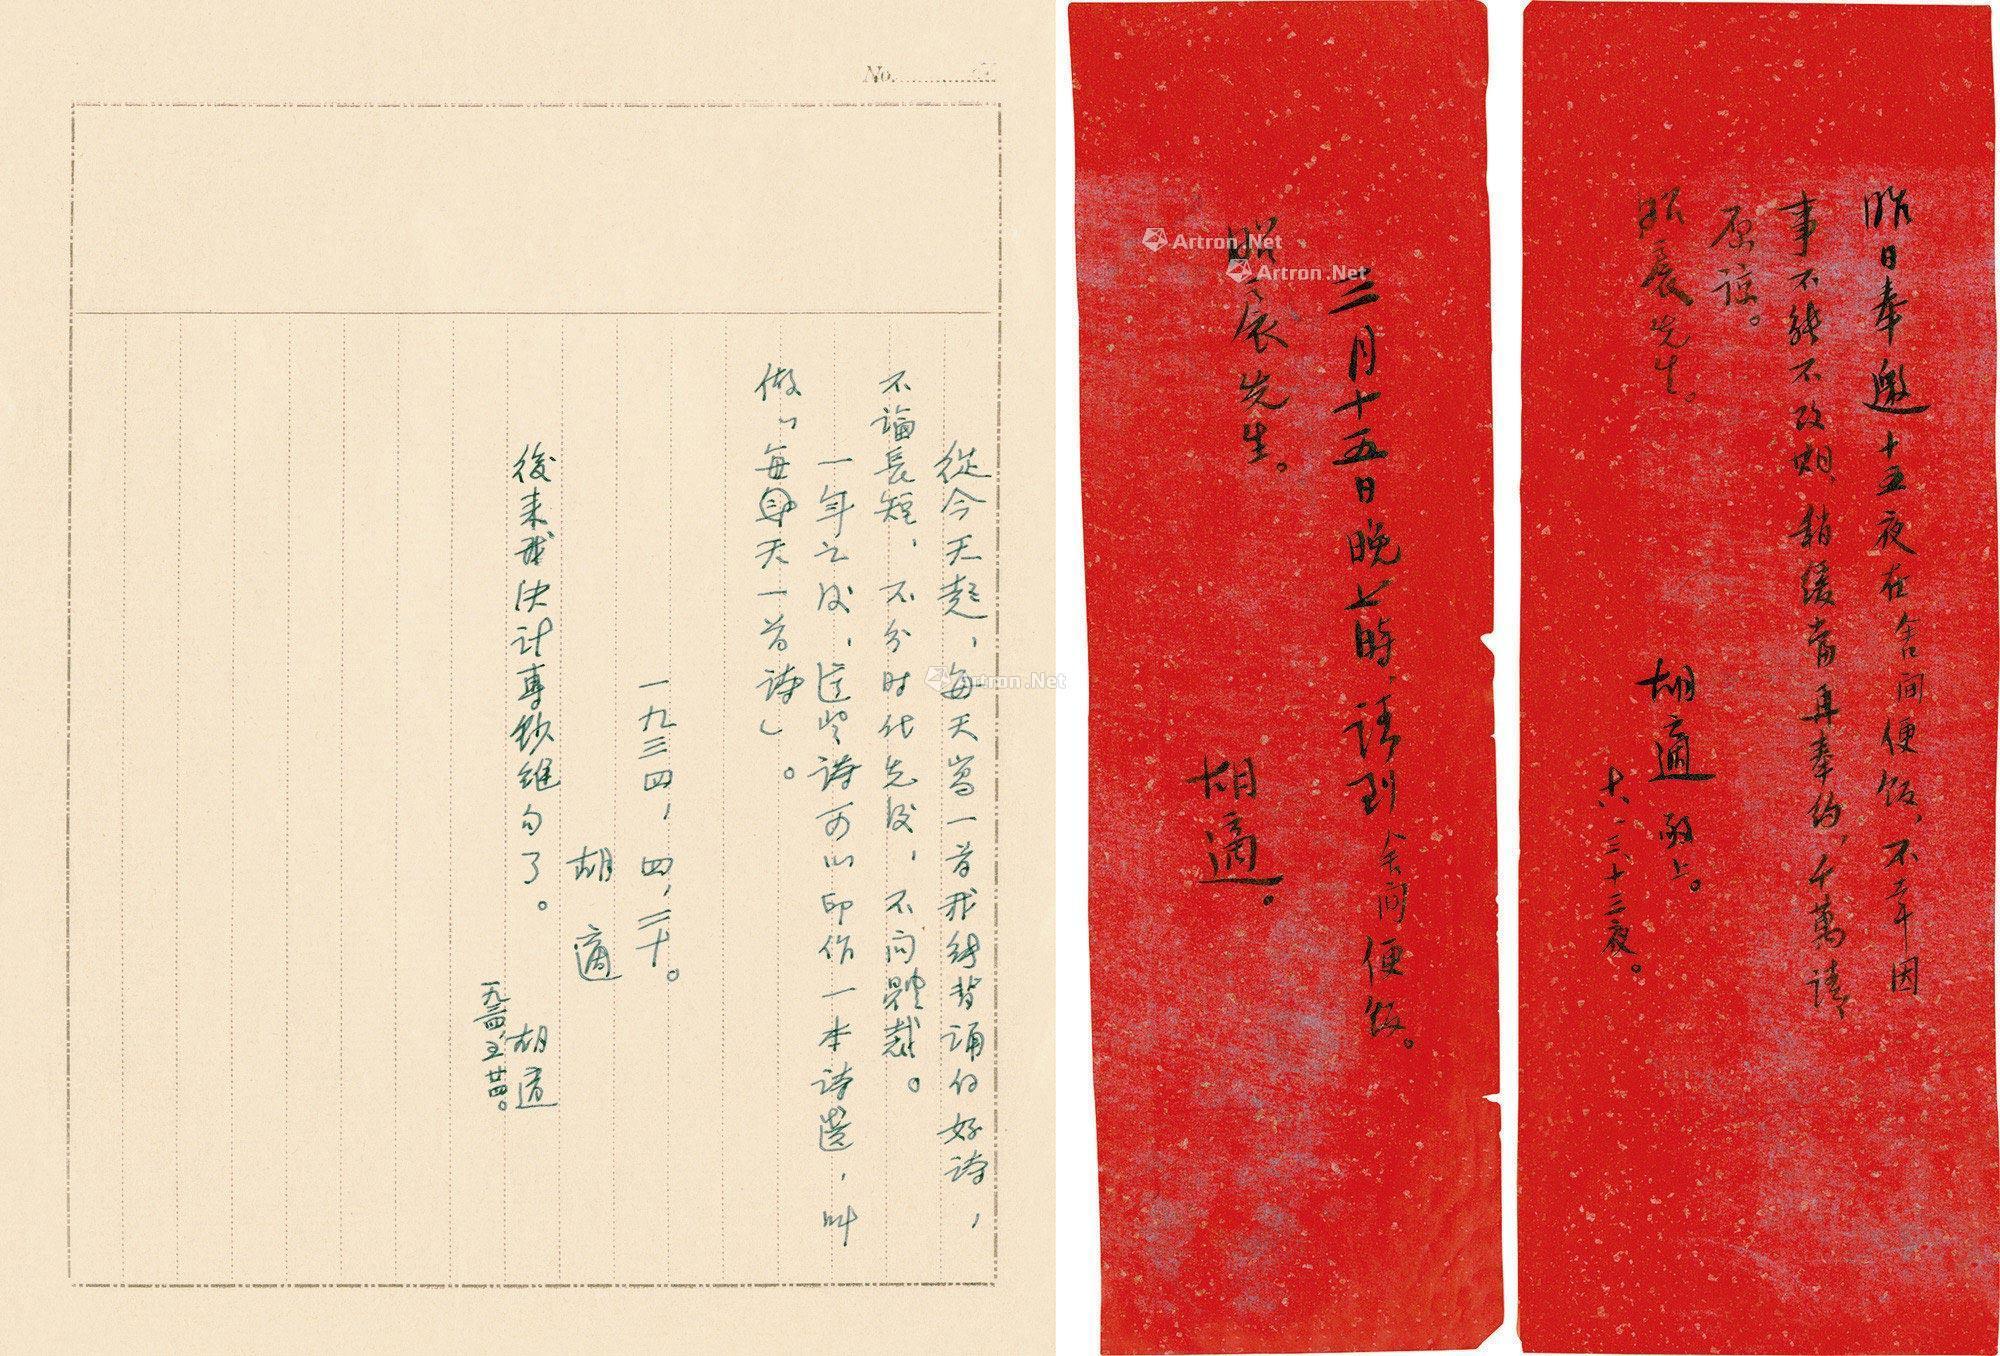 No.
從今天起，每天寫一首我能背誦的好詩，
不論長短，不分时代先後，不问體裁。
一年之後，這些詩可以印作一本詩選，叫
做「每天一首詩」。
一九三四，四，二十。
胡適
後来我決计專鈔絕句了。
胡適
一九三四，五，廿四。
三月十五日晚七時，請到舍间便饭。
昭宸先生。
胡適。
昨日奉邀十五夜在舍间便饭，不幸因
事不能不改期，稍緩當再奉約，千萬請
原諒。
昭宸先生。
胡適敬上。
十八，三，十三夜。
Artron.Net
Artron.Net
Artron.Net